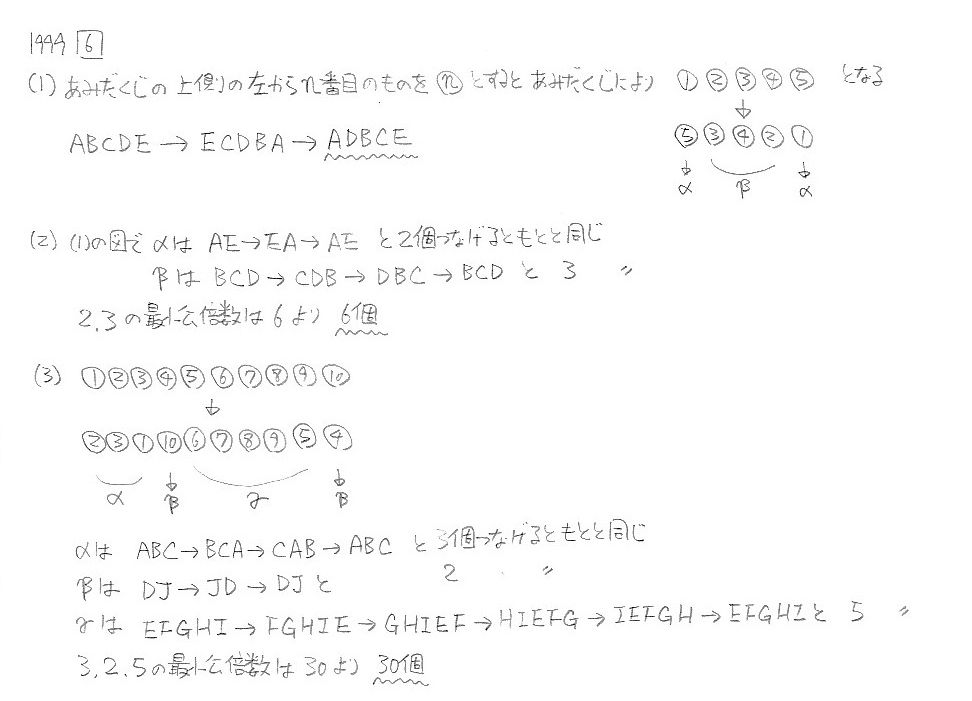 1999 6
(1) あみだくじの上側の左からn番目のものをⓝとするとあみだくじにより ①②③④⑤ となる
↓
ABCDE→ECDBA→ADBCE ⑤③④②①
↓ ↓
α β α
(2) (1)の図で αは AE→EA→AE と2個つなげるともとと同じ
βは BCD→CDB→DBC→BCD と 3 〃
2.3の最小公倍数は6より 6個
(3) ①②③④⑤⑥⑦⑧⑨⑩
↓
②③①⑩⑥⑦⑧⑨⑤④
↓ ↓
α β γ β
αは ABC→BCA→CAB→ABC と3個つなげるともとと同じ
βは DJ→JD→DJと 2 〃
γは EFGHI→FGHIE→GHIEF→HIEFG→IEFGH→EFGHIと 5 〃
3,2.5の最小公倍数は30より 30個